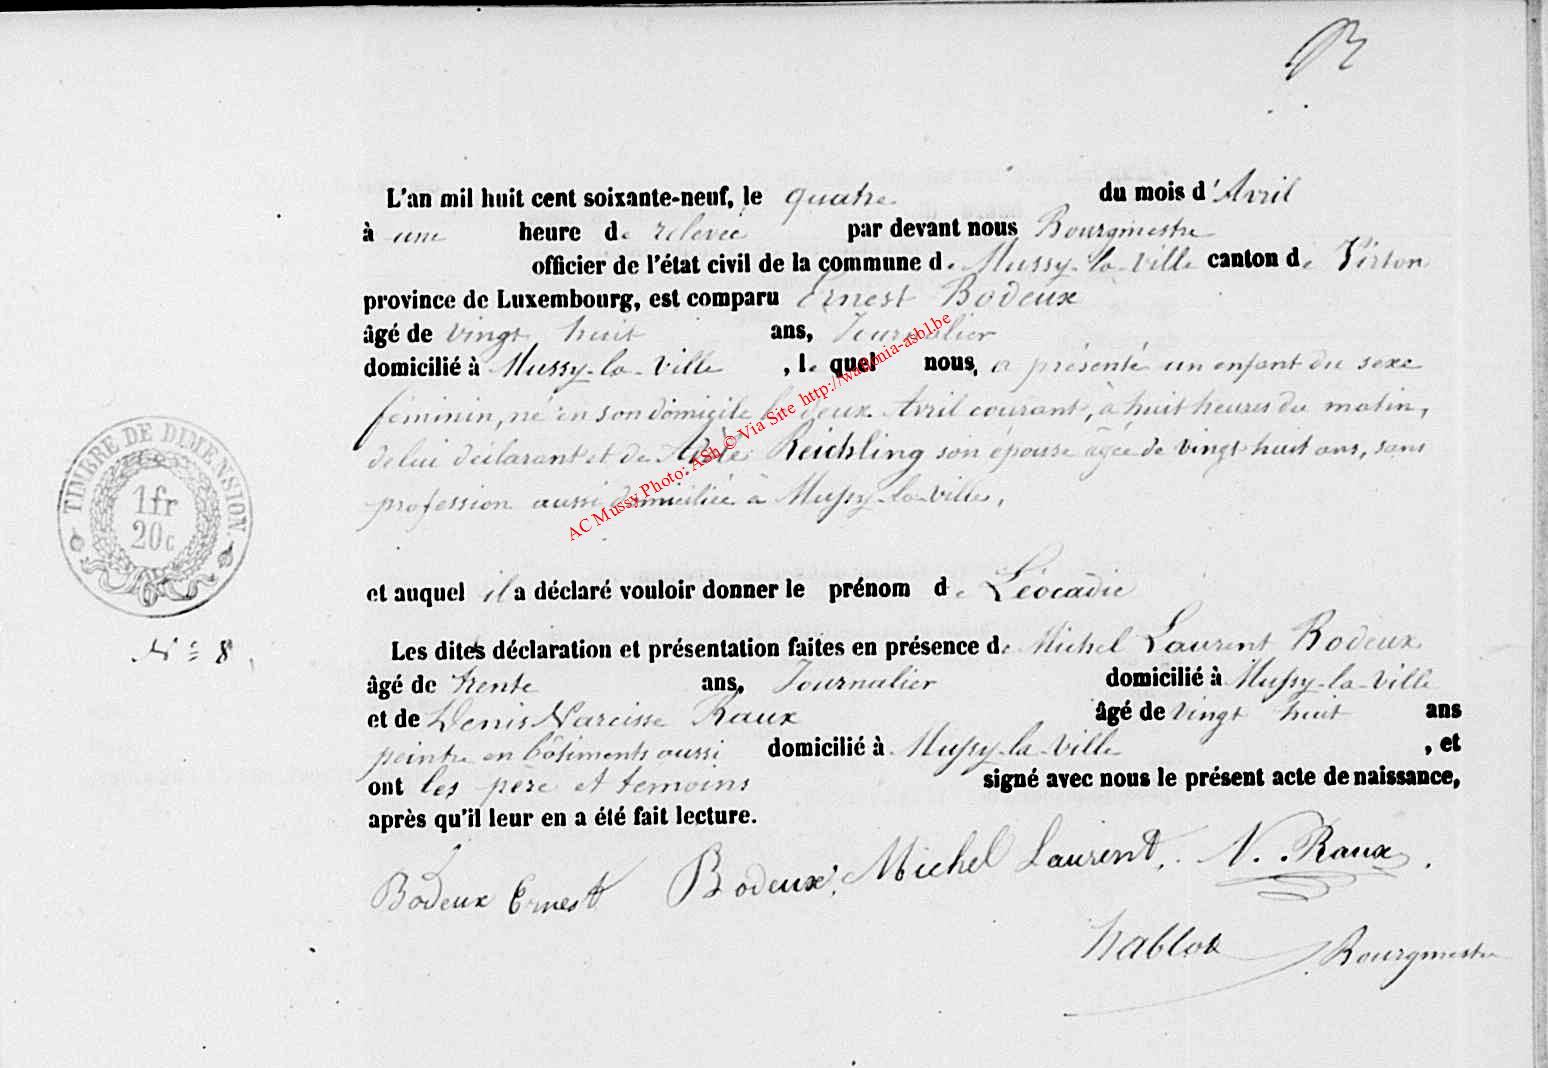 L'an mil huit cent soixante-neuf, le quatre du mois d'Avril
à une heure de relevée par devant nous Bourgmestre
officier de l'état civil de la commune de Mussy-la-Ville canton de Virton
province de Luxembourg, est comparu Ernest Bodeux
âgé de vingt huit ans, Journalier
domicilié à Mussy-la-Ville, le quel nous, a présenté un enfant du sexe
féminin, né en son domicile le deux Avril courant, à huit heures du matin,
de lui déclarant et de Adèle Reichling son épouse âgée de vingt huit ans, sans
profession aussi domiciliée à Mussy-la-Ville,
AC Mussy Photo: ASh © Via Site http://wallonia-asbl.be
TIMBRE DE DIMENSION.
1fr
20c
et auquel il a déclaré vouloir donner le prénom de Léocadie
N° 8
Les dites déclaration et présentation faites en présence de Michel Laurent Bodeux
âgé de trente ans, Journalier domicilié à Mussy-la-Ville
et de Denis Narcisse Raux âgé de vingt huit ans
peintre en bâtiments aussi domicilié à Mussy-la-Ville, et
ont les père et temoins signé avec nous le présent acte de naissance,
après qu'il leur en a été fait lecture.
Bodeux Ernest Bodeux, Michel Laurent. N. Raux.
Bourgmestre